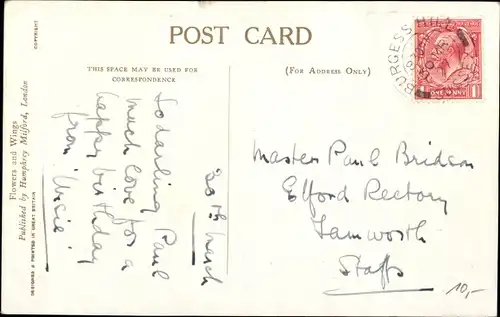 POST CARD
COPYRIGHT
THIS SPACE MAY BE USED FOR
CORRESPONDENCE
(FOR ADDRESS ONLY)
BURGESS HILL
ONE PENNY
Flowers and Wings
Published by Humphrey Milford, London
DESIGNED & PRINTED IN GREAT BRITAIN
30th March
To darling Paul
much love for a
happy birthday
from
Master Paul Bridson
Elford Rectory
Tamworth
Staffs
10,-